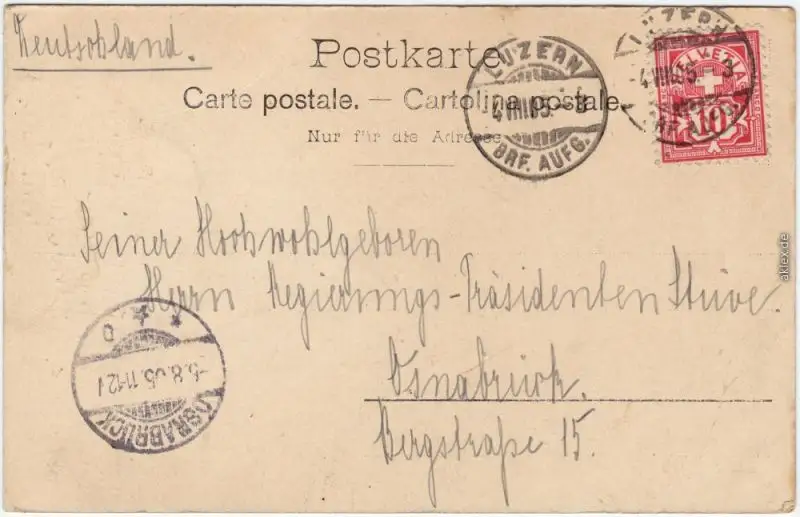 Deutschland.
Postkarte
Carte postale. — Cartolina postale.
Nur für die Adresse
LUZERN
4 VIII 05 - 8
BRF. AUFG.
LUZERN
4 VIII 05 - 8
BRF. AUFG.
HELVETIA
10
Seiner Hochwohlgeboren
Herrn Regierungs-Präsidenten Stüve.
Osnabrück.
Bergstraße 15.
OSNABRÜCK
-5.8.05.11-12V
akfex.de